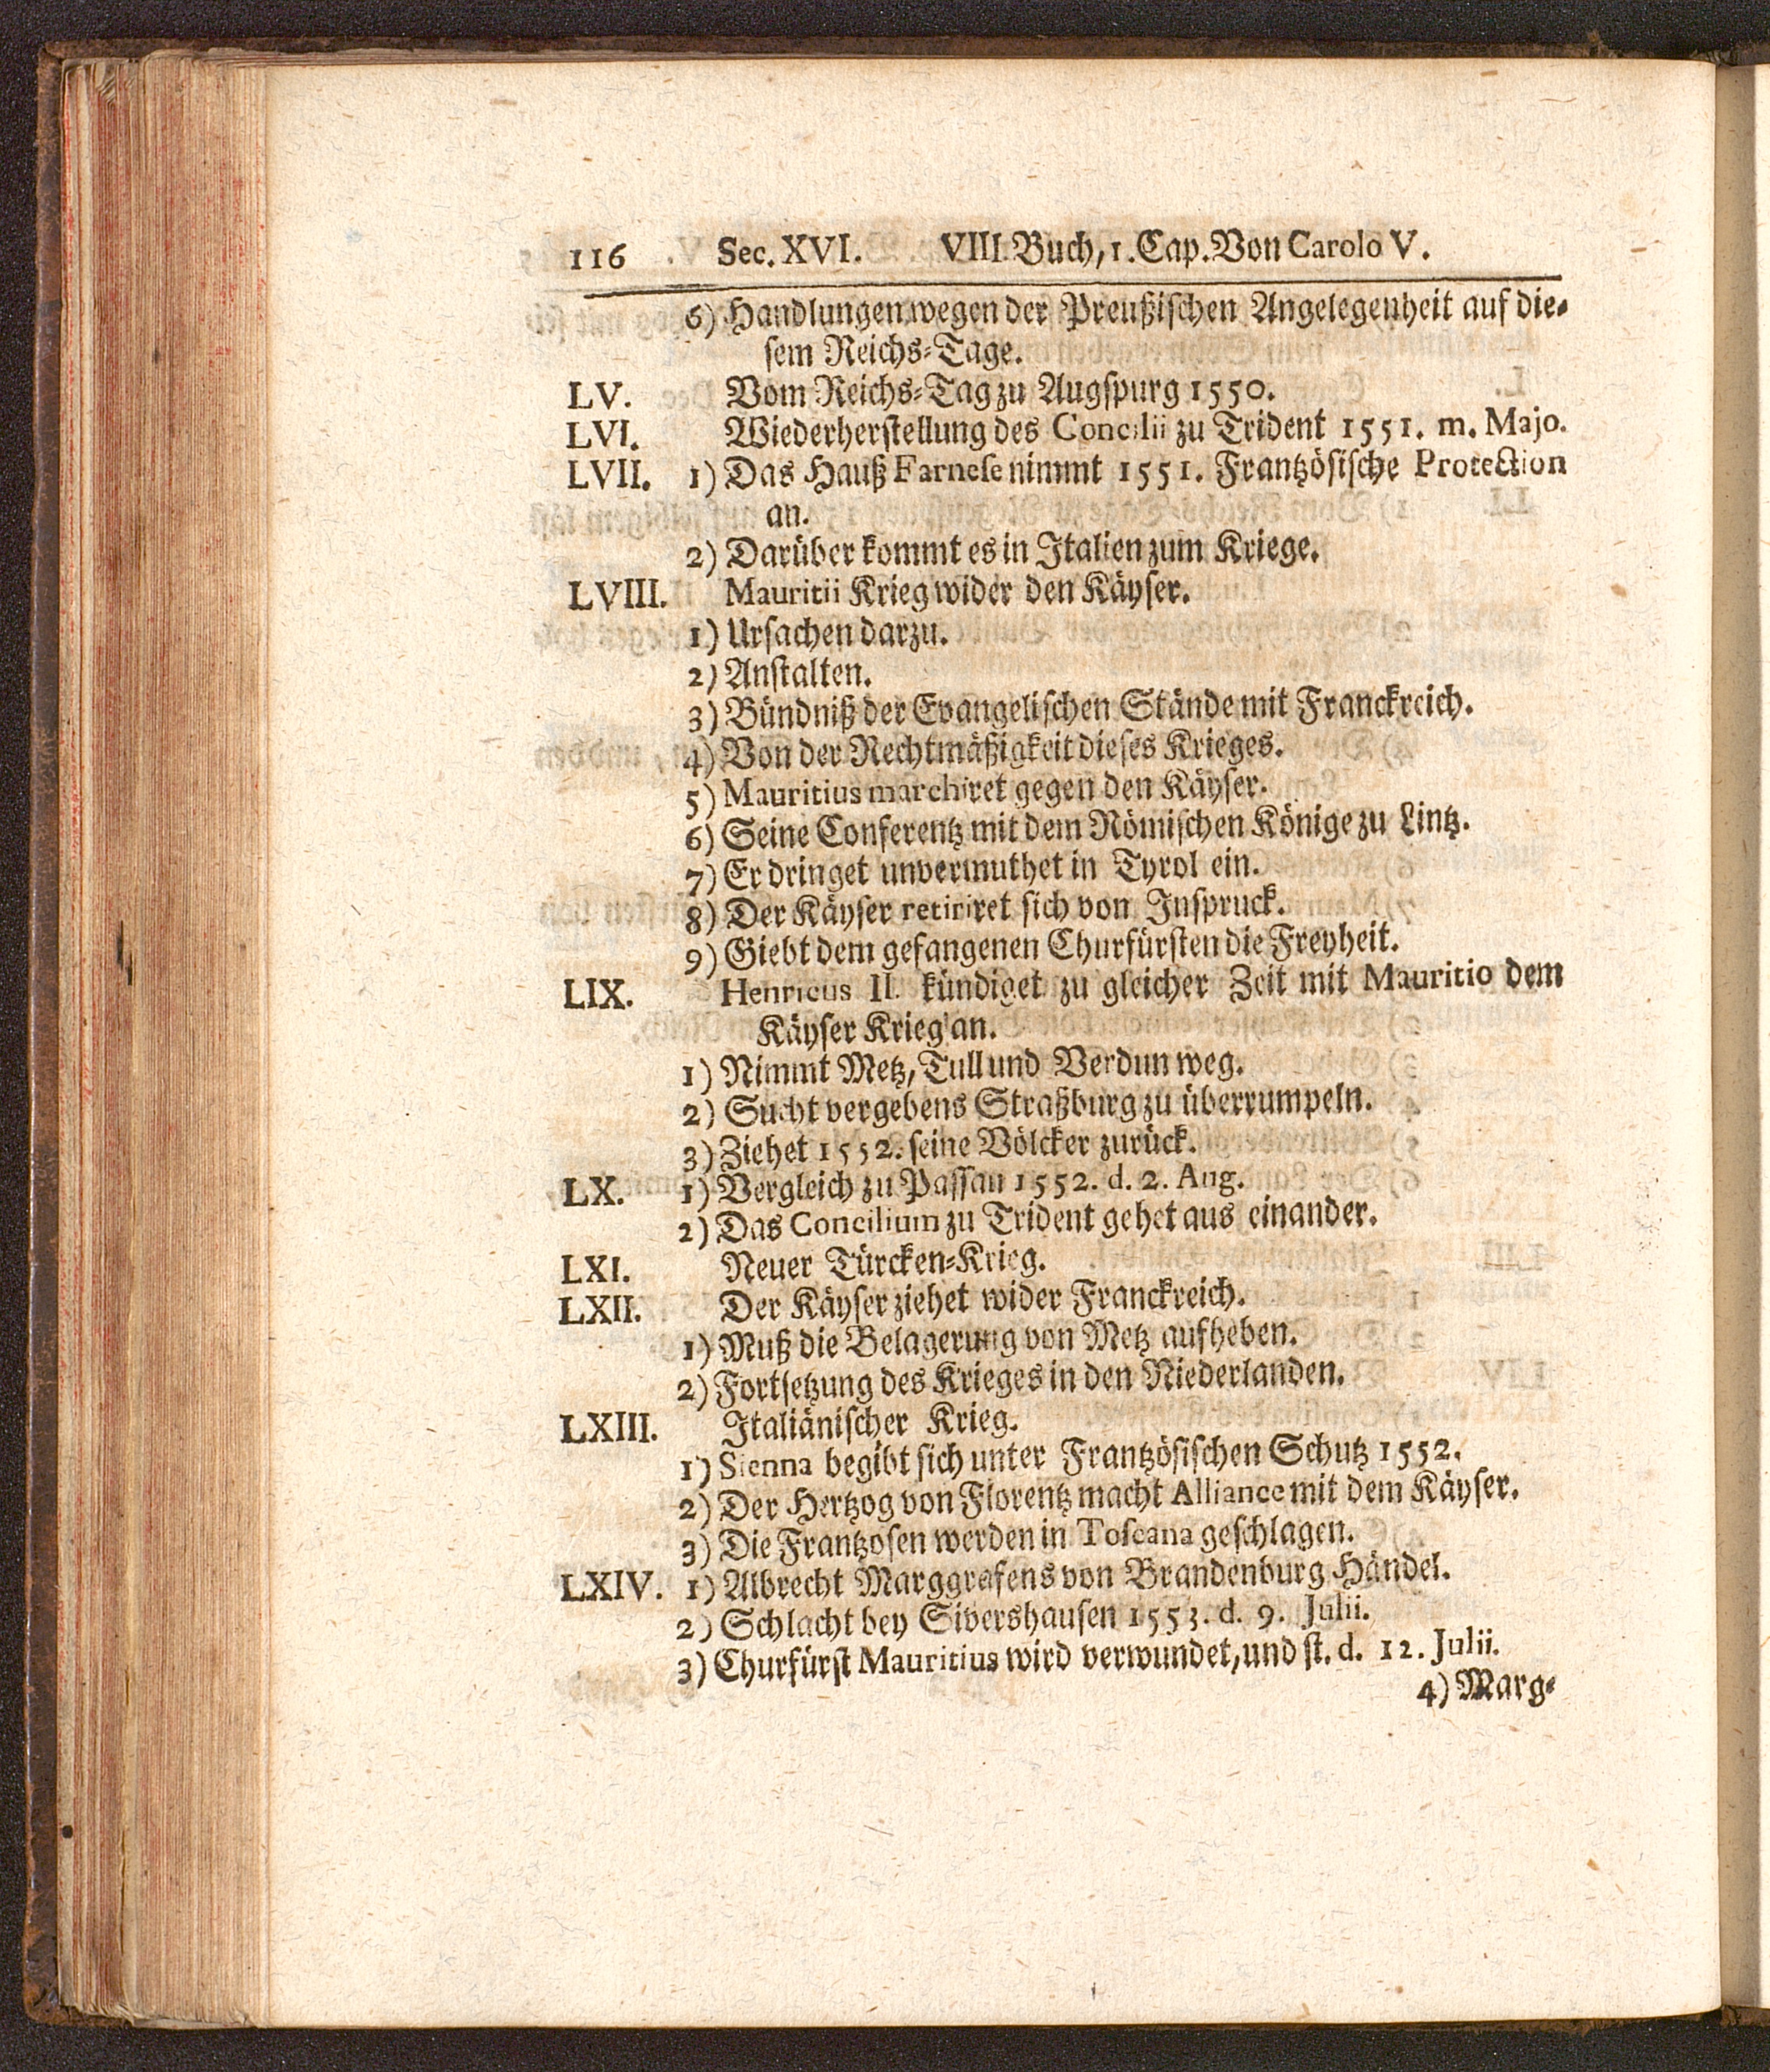 116 Sec. XVI. VIII. Buch, 1. Cap. Von Carolo V.
6) Handlungen wegen der Preußischen Angelegenheit auf die-
sem Reichs-Tage.
LV. Vom Reichs-Tag zu Augspurg 1550.
LVI. Wiederherstellung des Concilii zu Trident 1551. m. Majo.
LVII. 1) Das Hauß Farnese nimmt 1551. Frantzösische Protection
an.
2) Darüber kommt es in Italien zum Kriege.
LVIII. Mauritii Krieg wider den Käyser.
1) Ursachen darzu.
2) Anstalten.
3) Bündniß der Evangelischen Stände mit Franckreich.
4) Von der Rechtmäßigkeit dieses Krieges.
5) Mauritius marchiret gegen den Käyser.
6) Seine Conferentz mit dem Römischen Könige zu Lintz.
7) Er dringet unvermuthet in Tyrol ein.
8) Der Käyser retiriret sich von Inspruck.
9) Giebt dem gefangenen Churfürsten die Freyheit.
LIX. Henricus II. kündiget zu gleicher Zeit mit Mauritio dem
Käyser Krieg an.
1) Nimmt Metz, Tull und Verdun weg.
2) Sucht vergebens Straßburg zu überrumpeln.
3) Ziehet 1552. seine Völcker zurück.
LX. 1) Vergleich zu Passau 1552. d. 2. Aug.
2) Das Concilium zu Trident gehet aus einander.
LXI. Neuer Türcken-Krieg.
LXII. Der Käyser ziehet wider Franckreich.
1) Muß die Belagerung von Metz aufheben.
2) Fortsetzung des Krieges in den Niederlanden.
LXIII. Italiänischer Krieg.
1) Sienna begibt sich unter Frantzösischen Schutz 1552.
2) Der Hertzog von Florentz macht Alliance mit dem Käyser.
3) Die Frantzosen werden in Toscana geschlagen.
LXIV. 1) Albrecht Marggrafens von Brandenburg Händel.
2) Schlacht bey Sivershausen 1553. d. 9. Julii.
3) Churfürst Mauritius wird verwundet, und st. d. 12. Julii.
4) Marg-